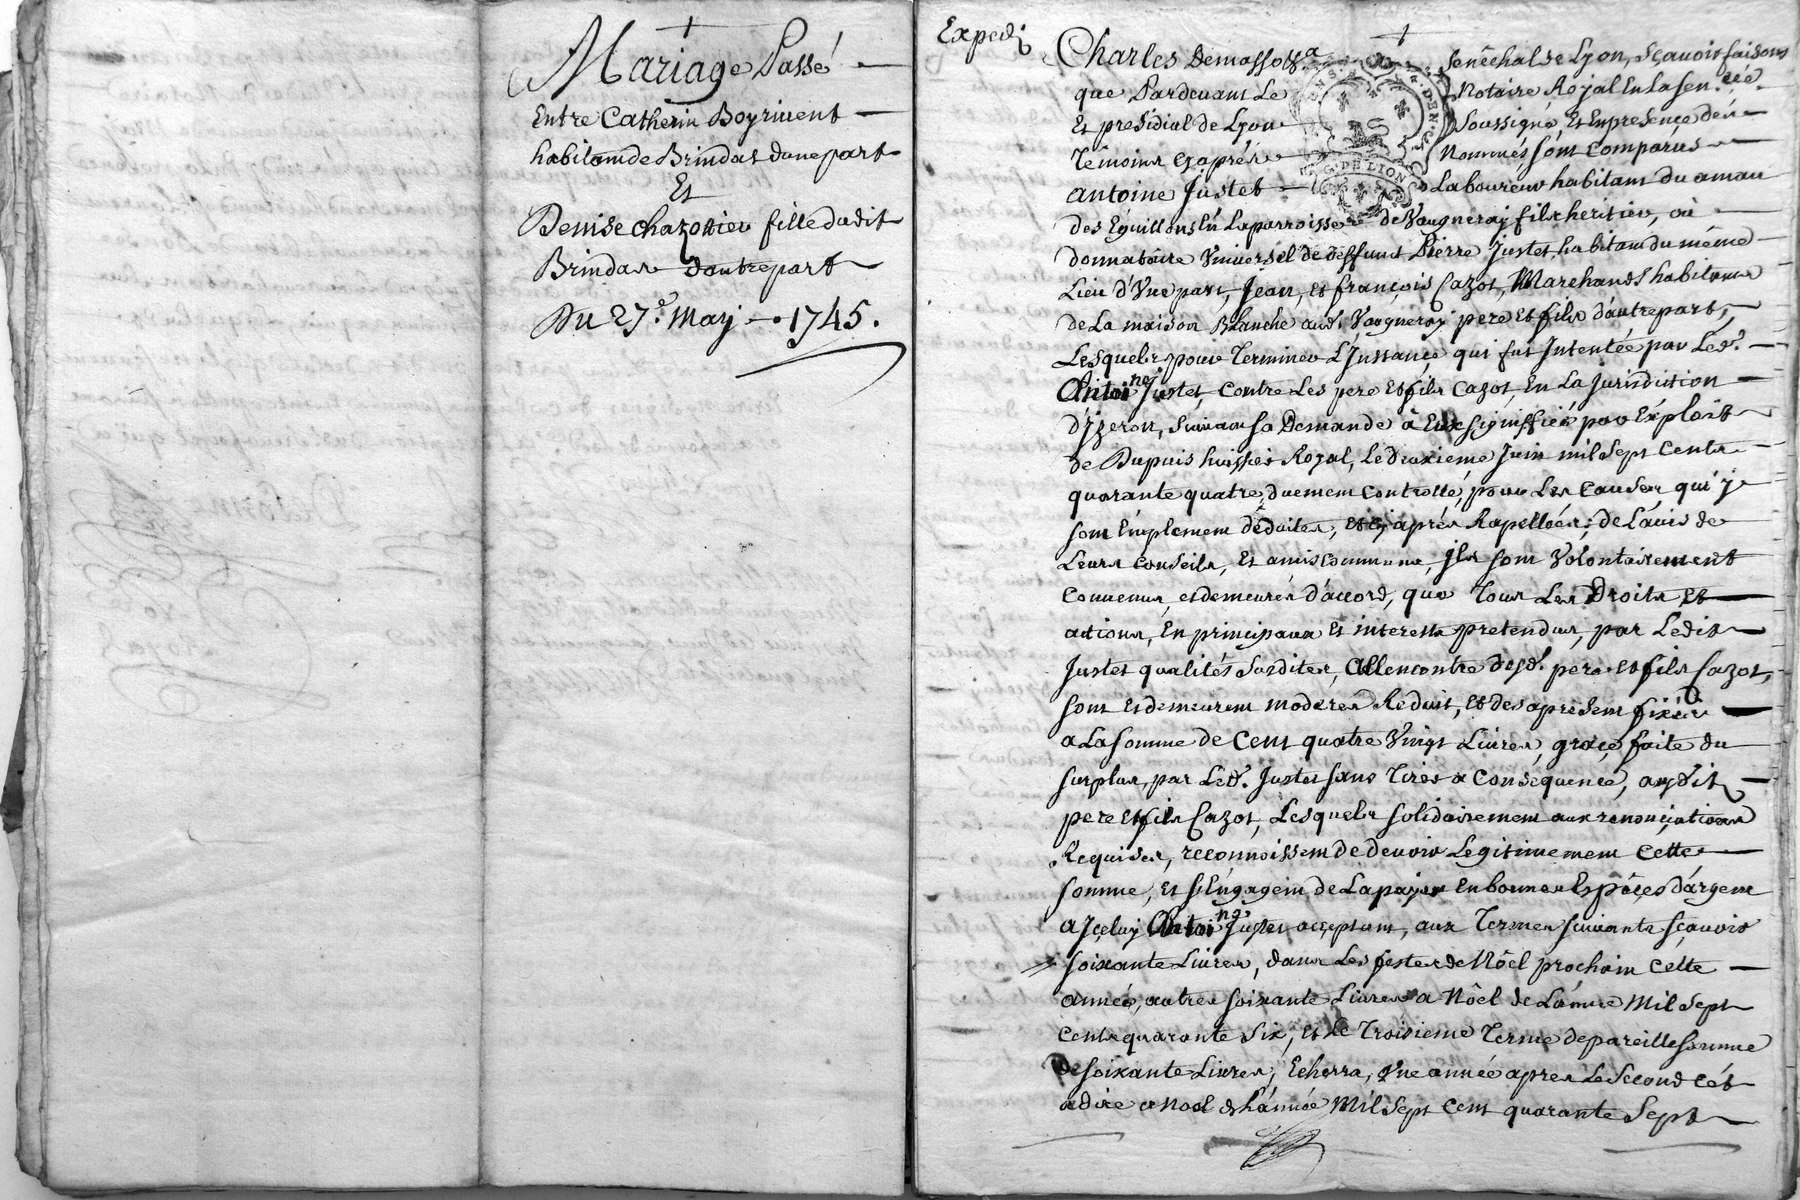 Mariage Passé
Entre Catherin Boyriuent
habitam de Brindas dune part
Et
Denise chazottier fille dudit
Brindas dautre part
Du 27.e May 1745.
Expedi
Charles Demassola Senéchal de Lyon, Sçauoir faisons
que Pardeuant Le Notaire Royal En la Sen.cée
Et presidial de Lyon Soussigné, Et En presence des
Témoins cy après Nommés sont comparus
Antoine Justet Laboureur habitant du amau
des Eguillons En La parroisse de Vaugneray fils heritier, ou
donnataire Vniversel de deffunt Pierre Justet, habitam du même
Lieu d'Vne part, Jean, et François Cazot, Marchands habitans
de La maison Blanche aud. Vaugneray pere Et fils d'autre part,
Lesquels pour Terminer L'Instance qui fut Intentée par Led.
Antoine Justet, Contre Les pere Et fils Cazot, En La Jurisdiction
d'Yzeron, Suiuant sa Demande à Eux signiffiée par Exploit
de Dupuis huissier Royal, Le deuxieme Juin mil Sept Cents
quarante quatre, duement Controllé, pour Les Causes qui y
sont Emplement déduites, et cy après Rapellées; de L'auis de
Leurs Conseils, Et amis communs, Ils sont Volontairement
Conuenus, et demeurés d'accord, que Tous Les Droits Et
actions, En principaux Et interests pretendus, par Ledit
Justet qualités Susdites, Allencontre desd. pere Et fils Cazot,
sont Et demeurent moderés Reduit, et des apresent fixés
a La Somme de Cent quatre Vingt Liures, grace faite du
surplus, par Led. Justet sans Tirer a Consequence, auxdit
pere Et fils Cazot, Lesquels solidairement aux renonciations
Requises, reconnoissent de deuoir Legitimement cette
somme, Et s'Engagent de La payer En bonnes Espéces d'argent
a Jceluy Antoine Justet acceptant, aux Termes suiuants sçauoir
soixante Liures, dans Les festes de Nôel prochain cette
année, autres soixante Liures a Nôel de L'année Mil Sept
Cents quarante Six, Et Le Troisieme Terme de pareille somme
de soixante Liures, Echerra, Vne année apres Le Second cést
adire a Noel de L'année Mil Sept Cent quarante Sept